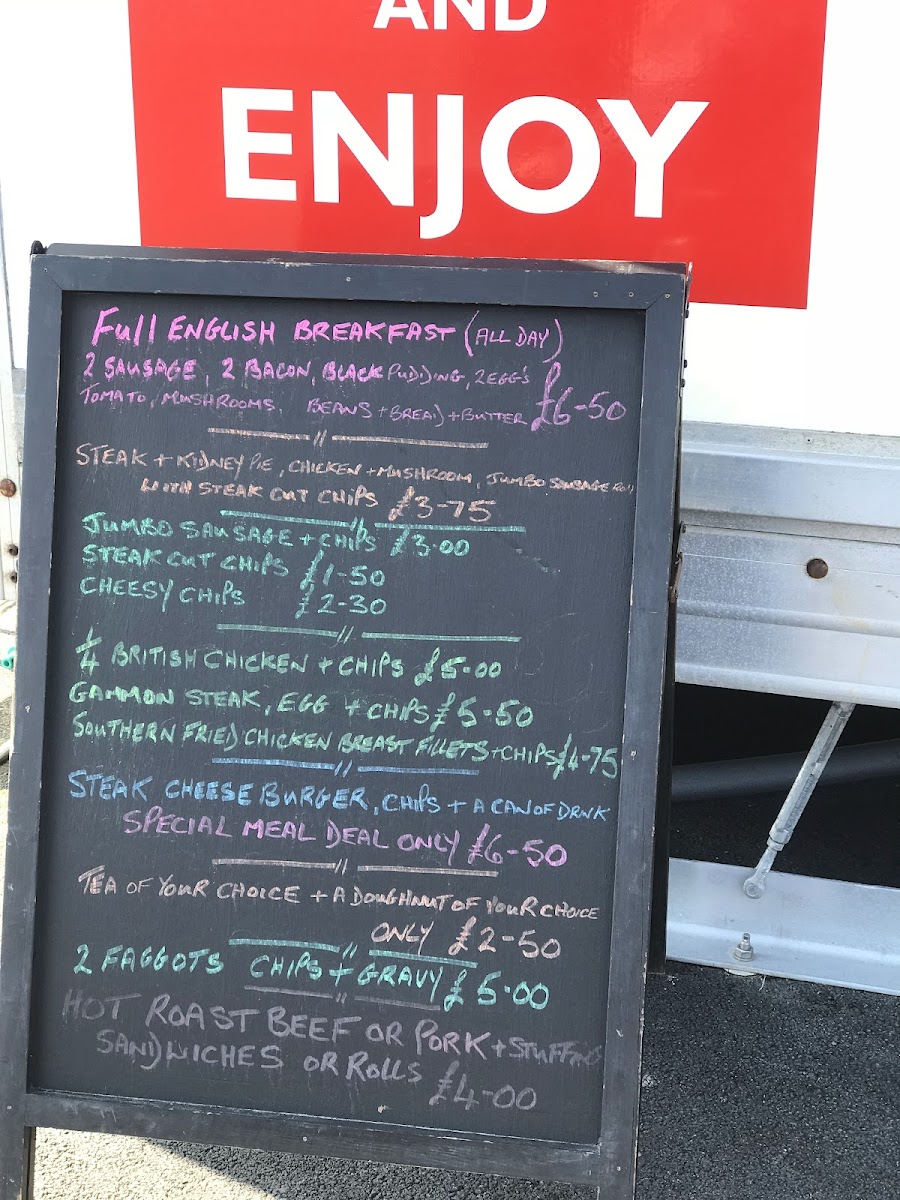 AND
ENJOY
Full ENGLISH BREAKFAST (ALL DAY)
2 SAUSAGE, 2 BACON, BLACK PUDDING, 2 EGG'S
TOMATO, MUSHROOMS, BEANS + BREAD + BUTTER £6-50
STEAK + KIDNEY PIE, CHICKEN + MUSHROOM, JUMBO SAUSAGE ROLL
WITH STEAK CUT CHIPS £3-75
JUMBO SAUSAGE + CHIPS £3.00
STEAK CUT CHIPS £1-50
CHEESY CHIPS £2-30
1/4 BRITISH CHICKEN + CHIPS £5.00
GAMMON STEAK, EGG + CHIPS £5-50
SOUTHERN FRIED CHICKEN BREAST FILLETS + CHIPS £4-75
STEAK CHEESE BURGER, CHIPS + A CAN OF DRINK
SPECIAL MEAL DEAL ONLY £6-50
TEA OF YOUR CHOICE + A DOUGHNUT OF YOUR CHOICE
ONLY £2-50
2 FAGGOTS CHIPS + GRAVY £5.00
HOT ROAST BEEF OR PORK + STUFFING
SANDWICHES OR ROLLS £4-00